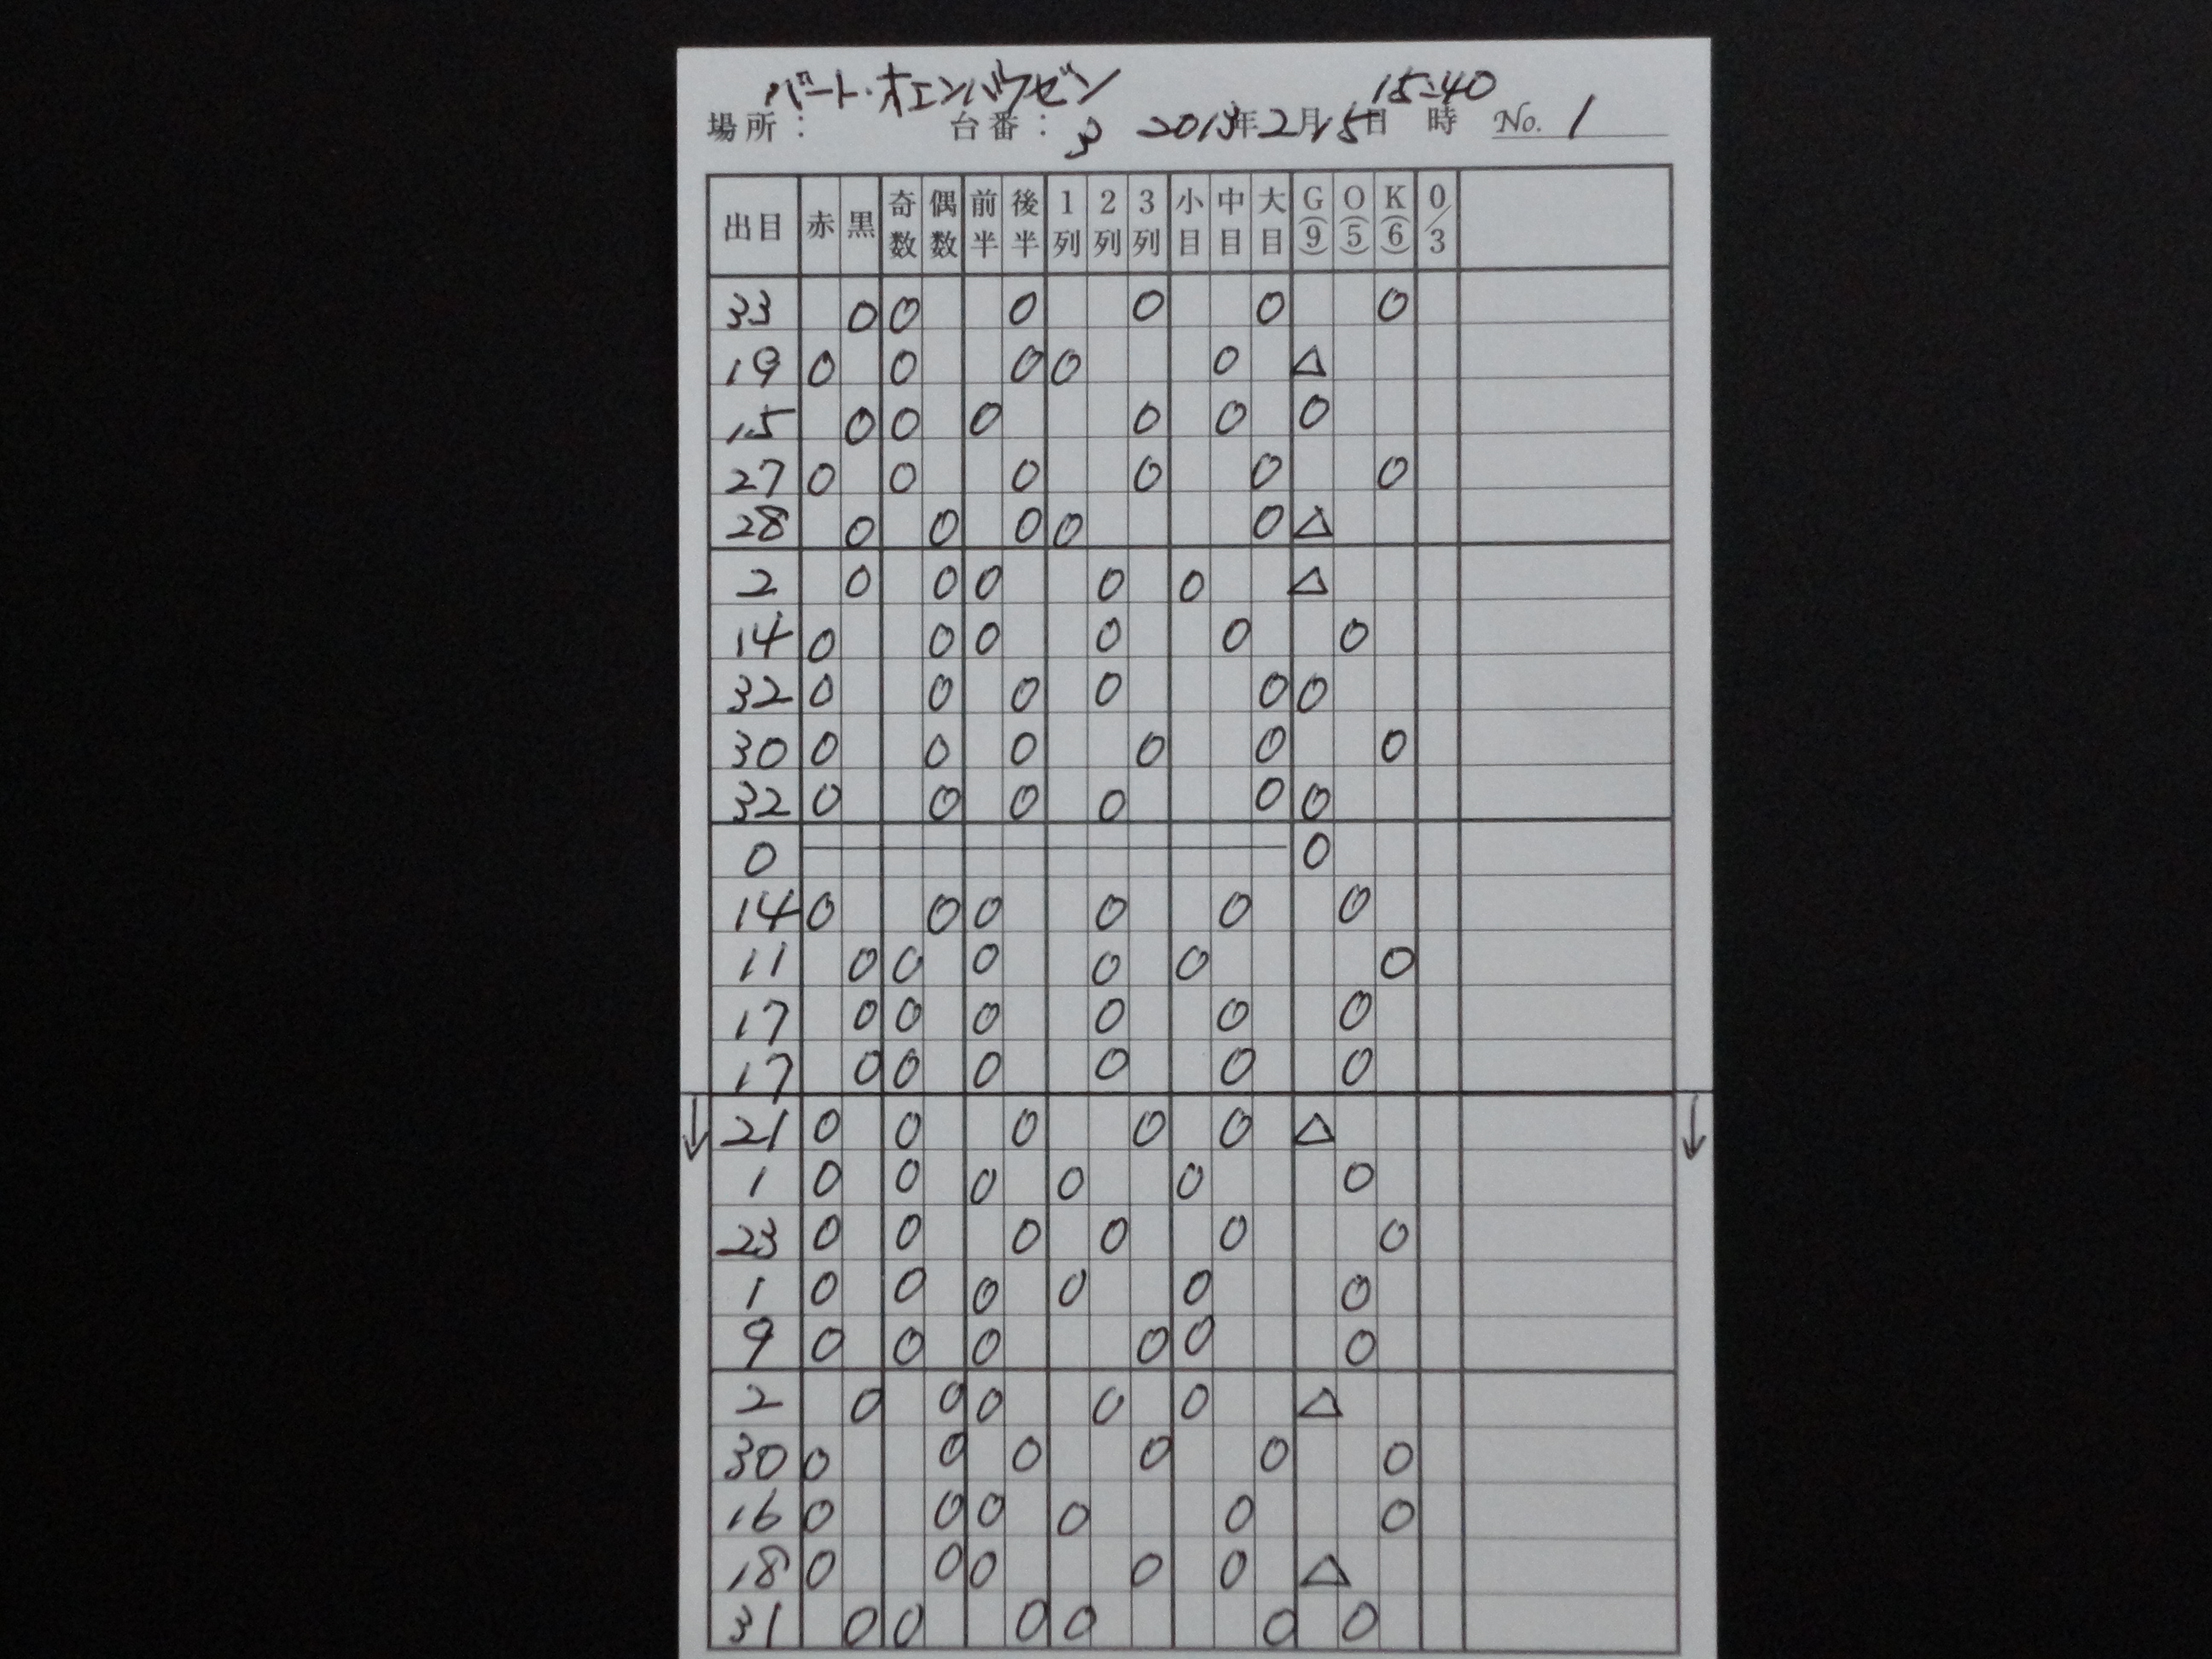 バート・オエンハウゼン 15:40
場所： 台番：3 2013年2月15日 時 No. 1
出目 赤 黒 奇数 偶数 前半 後半 1列 2列 3列 小目 中目 大目 G(9) O(5) K(6) 0/3
33 0 0 0 0 0 0
19 0 0 0 0 0 △
15 0 0 0 0 0 0
27 0 0 0 0 0 0
28 0 0 0 0 0 △
2 0 0 0 0 0 △
14 0 0 0 0 0 0
32 0 0 0 0 0 0
30 0 0 0 0 0 0
32 0 0 0 0 0 0
0 0
14 0 0 0 0 0 0
11 0 0 0 0 0 0
17 0 0 0 0 0 0
17 0 0 0 0 0 0
↓ 21 0 0 0 0 0 △ ↓
1 0 0 0 0 0 0
23 0 0 0 0 0 0
1 0 0 0 0 0 0
9 0 0 0 0 0 0
2 0 0 0 0 0 △
30 0 0 0 0 0 0
16 0 0 0 0 0 0
18 0 0 0 0 0 △
31 0 0 0 0 0 0